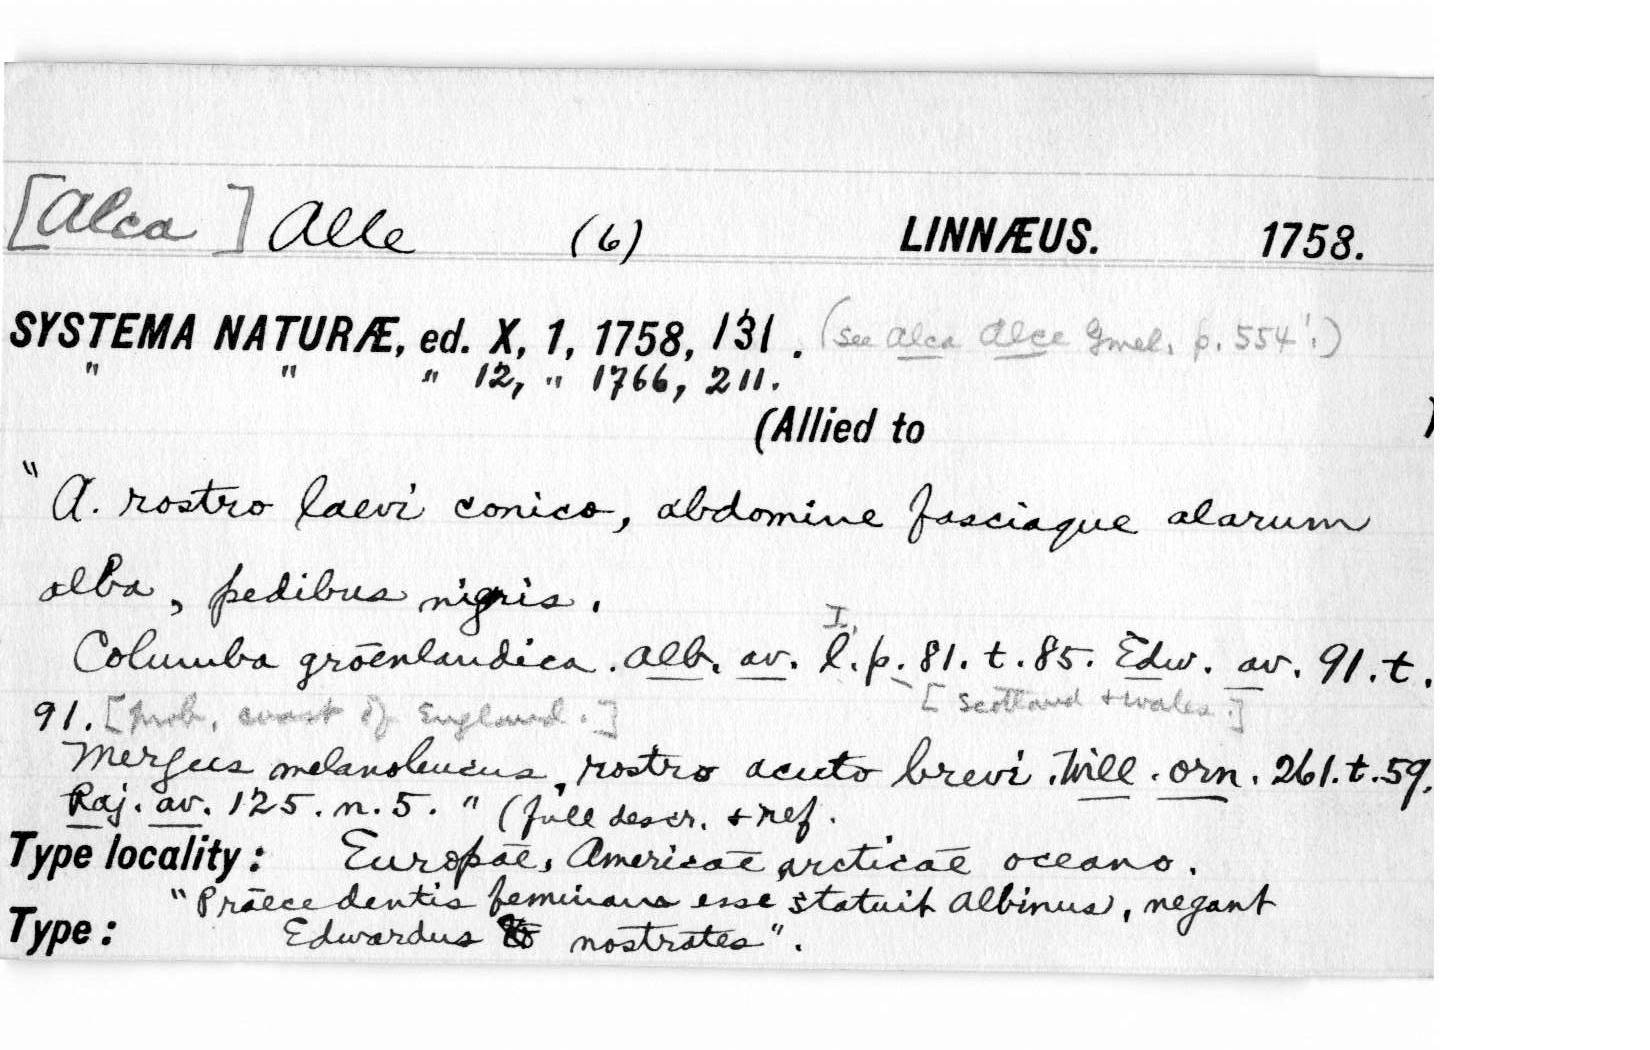 [Alca] Alle (6) LINNÆUS. 1758.
SYSTEMA NATURÆ, ed. X, 1, 1758, 131. (see Alca Alce Gmel. p. 554!)
" " " 12, " 1766, 211.
(Allied to )
"A. rostro laevi conico, abdomine fasciaque alarum
alba, pedibus nigris.
I.
Columba gröenlandica. Alb. av. l. p. 81. t. 85. Edw. av. 91. t.
[Scotland + Wales.]
91. [prob. coast of England.]
Mergus melanoleucus, rostro acuto brevi. Will. orn. 261. t. 59.
Raj. av. 125. n. 5." (full descr. + ref.
Type locality: Europāe, Americāe arcticāe oceano.
"Prāecedentis feminam esse statuit Albinus, negant
Type: Edwardus nostrates".